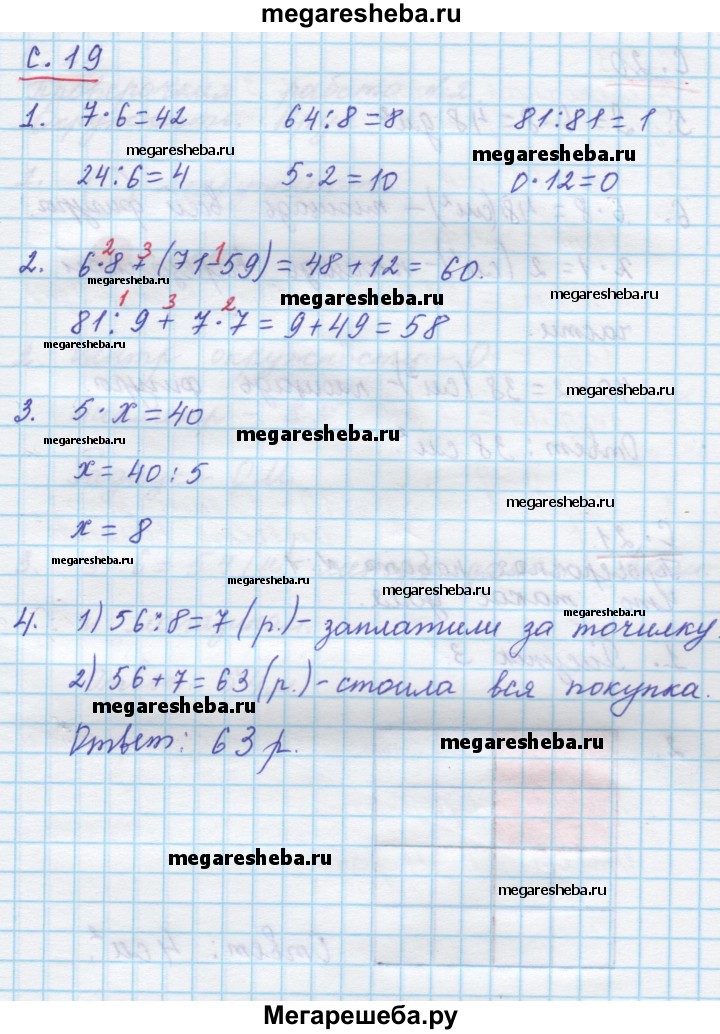 megaresheba.ru
с. 19
1. 7·6=42 64:8=8 81:81=1
megaresheba.ru megaresheba.ru
24:6=4 5·2=10 0·12=0
2 3 1
2. 6·8+(71-59)=48+12=60.
megaresheba.ru megaresheba.ru
1 3 2
81:9+7·7=9+49=58
megaresheba.ru
3. 5·x=40
megaresheba.ru megaresheba.ru
x=40:5
megaresheba.ru
x=8
megaresheba.ru
megaresheba.ru
megaresheba.ru
4. 1) 56:8=7(р.)-заплатили за точилку.
2) 56+7=63(р.)-стоила вся покупка.
megaresheba.ru
Ответ: 63 р.
megaresheba.ru
megaresheba.ru
megaresheba.ru
Мегарешеба.ру